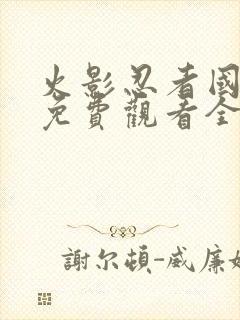 火影忍者國
免費觀看全
謝尔頓-威廉